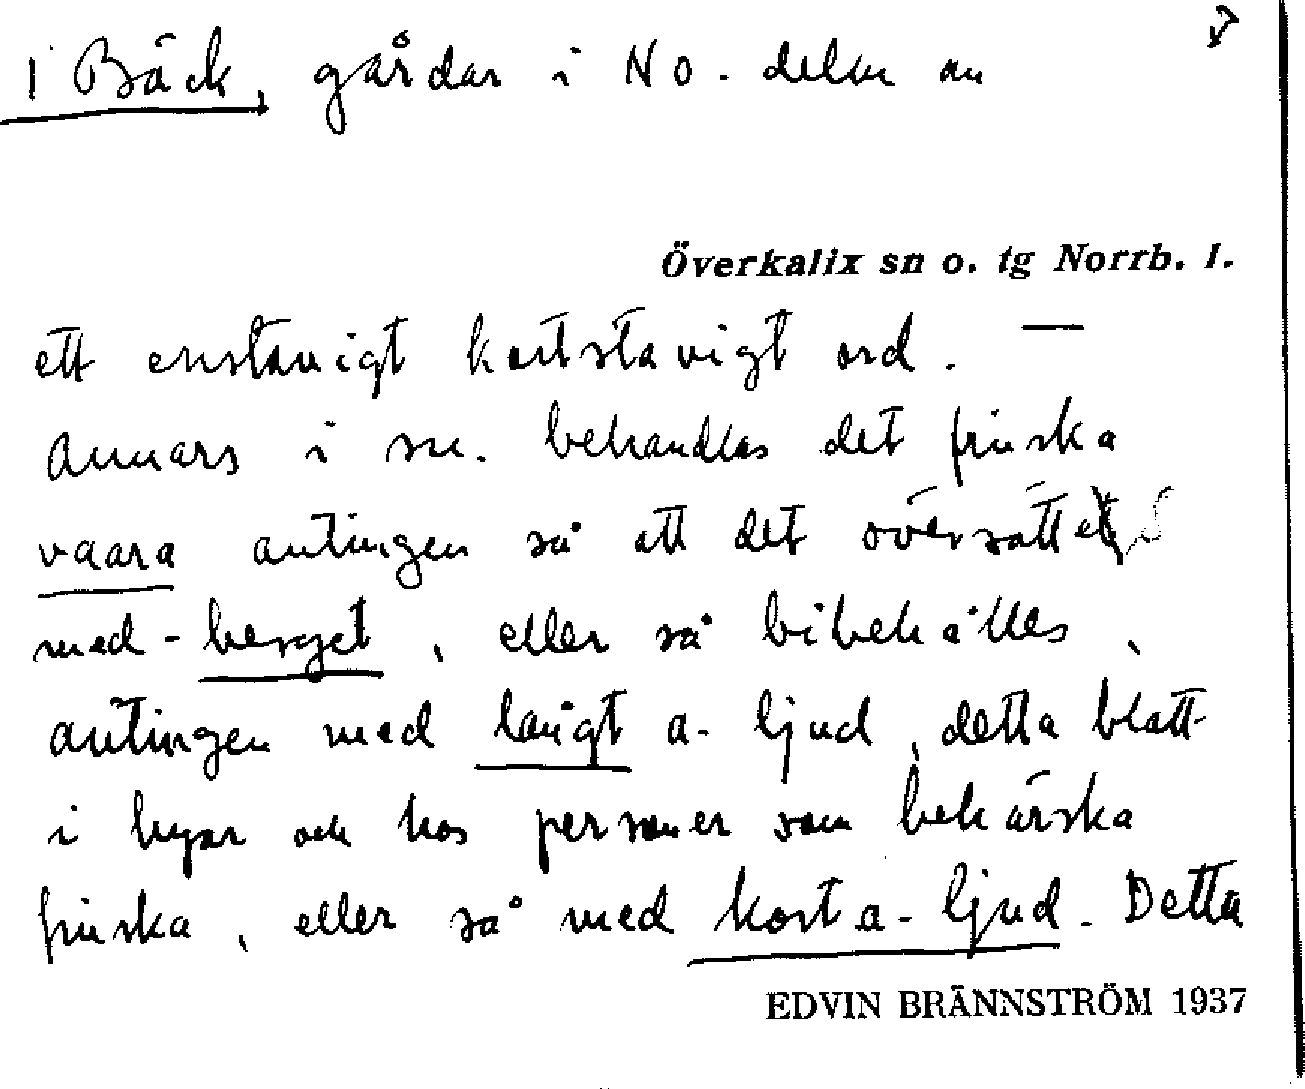 1 Bäck, gårdar i NO-delen av
Överkalix sn o. tg Norrb. l.
ett enstavigt kortstavigt ord. —
Annars i sn. behandlas det finska
vaara antingen så att det översättes
med -berget, eller så bibehålles,
antingen med långt a-ljud, detta blott
i byar och hos personer som behärska
finska, eller så med kort a-ljud. Detta
EDVIN BRÄNNSTRÖM 1937